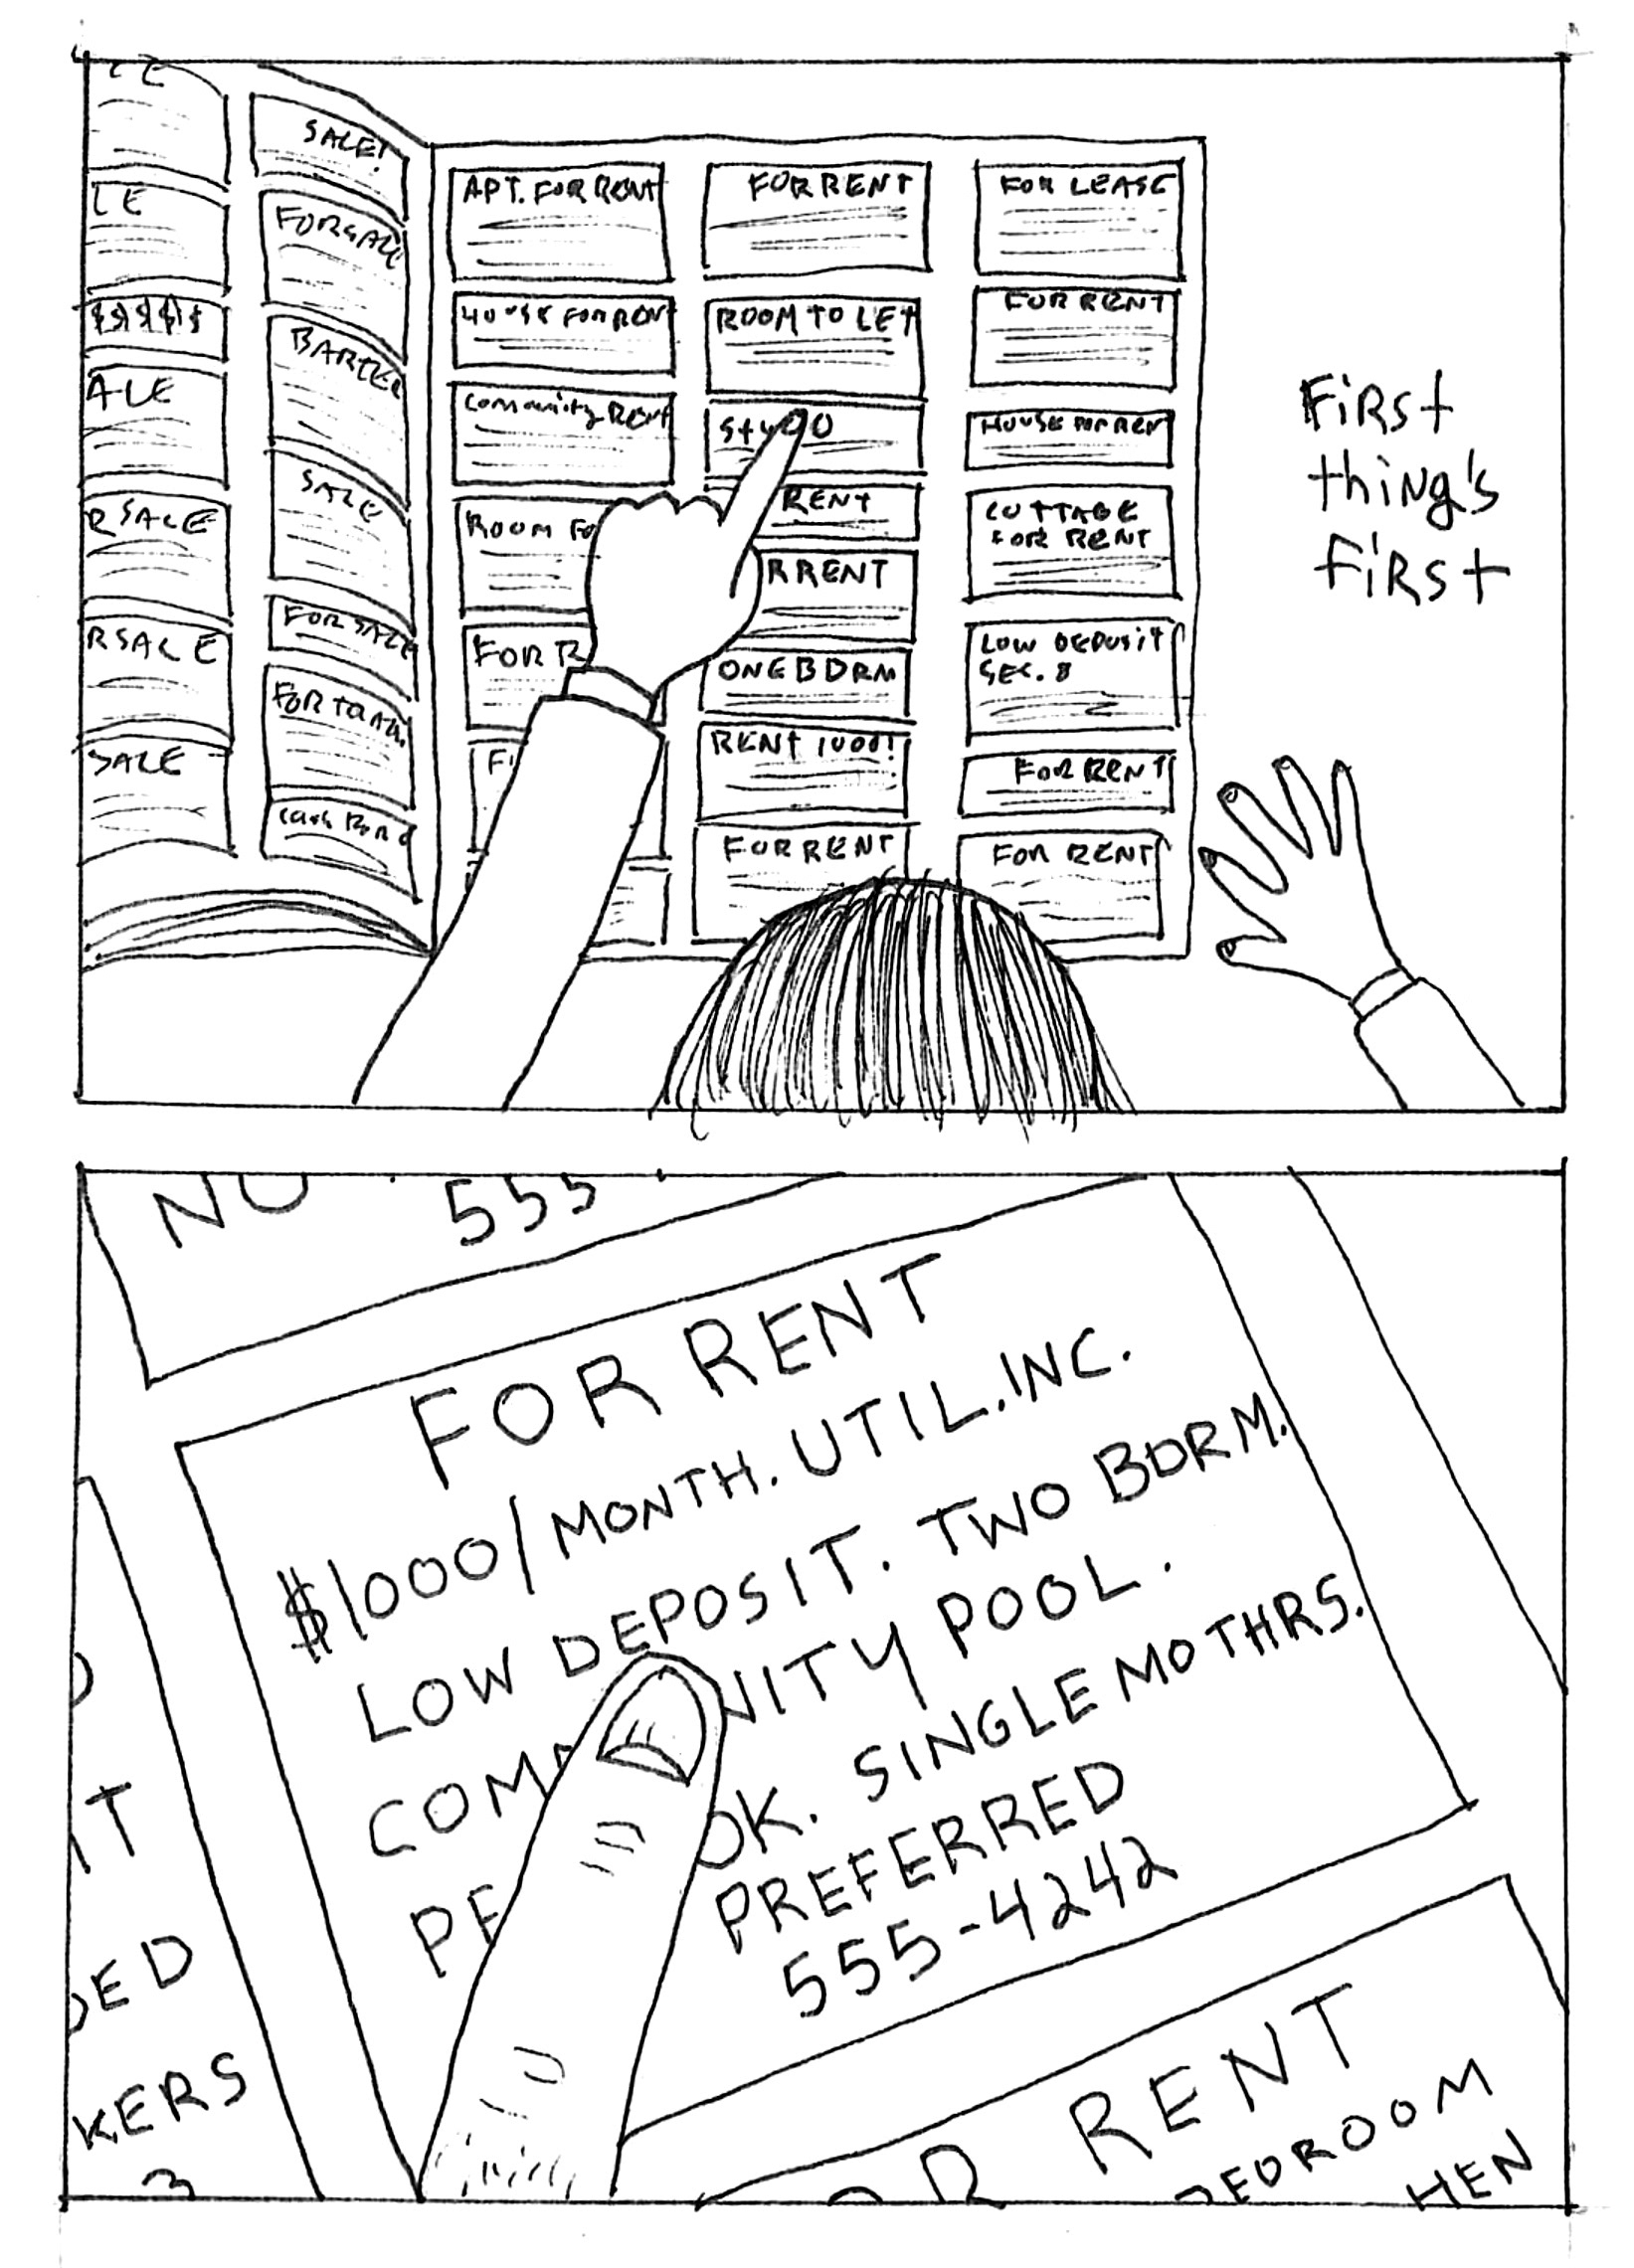 LE
SALE!
LE
FORSALE
$$$$$
BARTER
ALE
SALE
R SALE
FOR SALE
RSALE
FOR TRADE
SALE
APT. FOR RENT
HOUSE FOR RENT
Community Rent
ROOM FO
FOR R
FOR RENT
ROOM TO LET
RENT
R RENT
ONE BDRM
RENT 1000!
FOR RENT
FOR LEASE
FOR RENT
HOUSE FOR REN
COTTAGE
FOR RENT
LOW DEPOSIT
SEC. 8
FOR RENT
FOR RENT
FiRSt
thiNg's
FiRSt
NO 555
FOR RENT
$1000/MONTH. UTIL. INC.
LOW DEPOSIT. TWO BDRM.
COM NITY POOL.
PE OK. SINGLE MOTHRS.
PREFERRED
555-4242
T
DED
KERS
3
OR RENT
BEDROOM
HEN